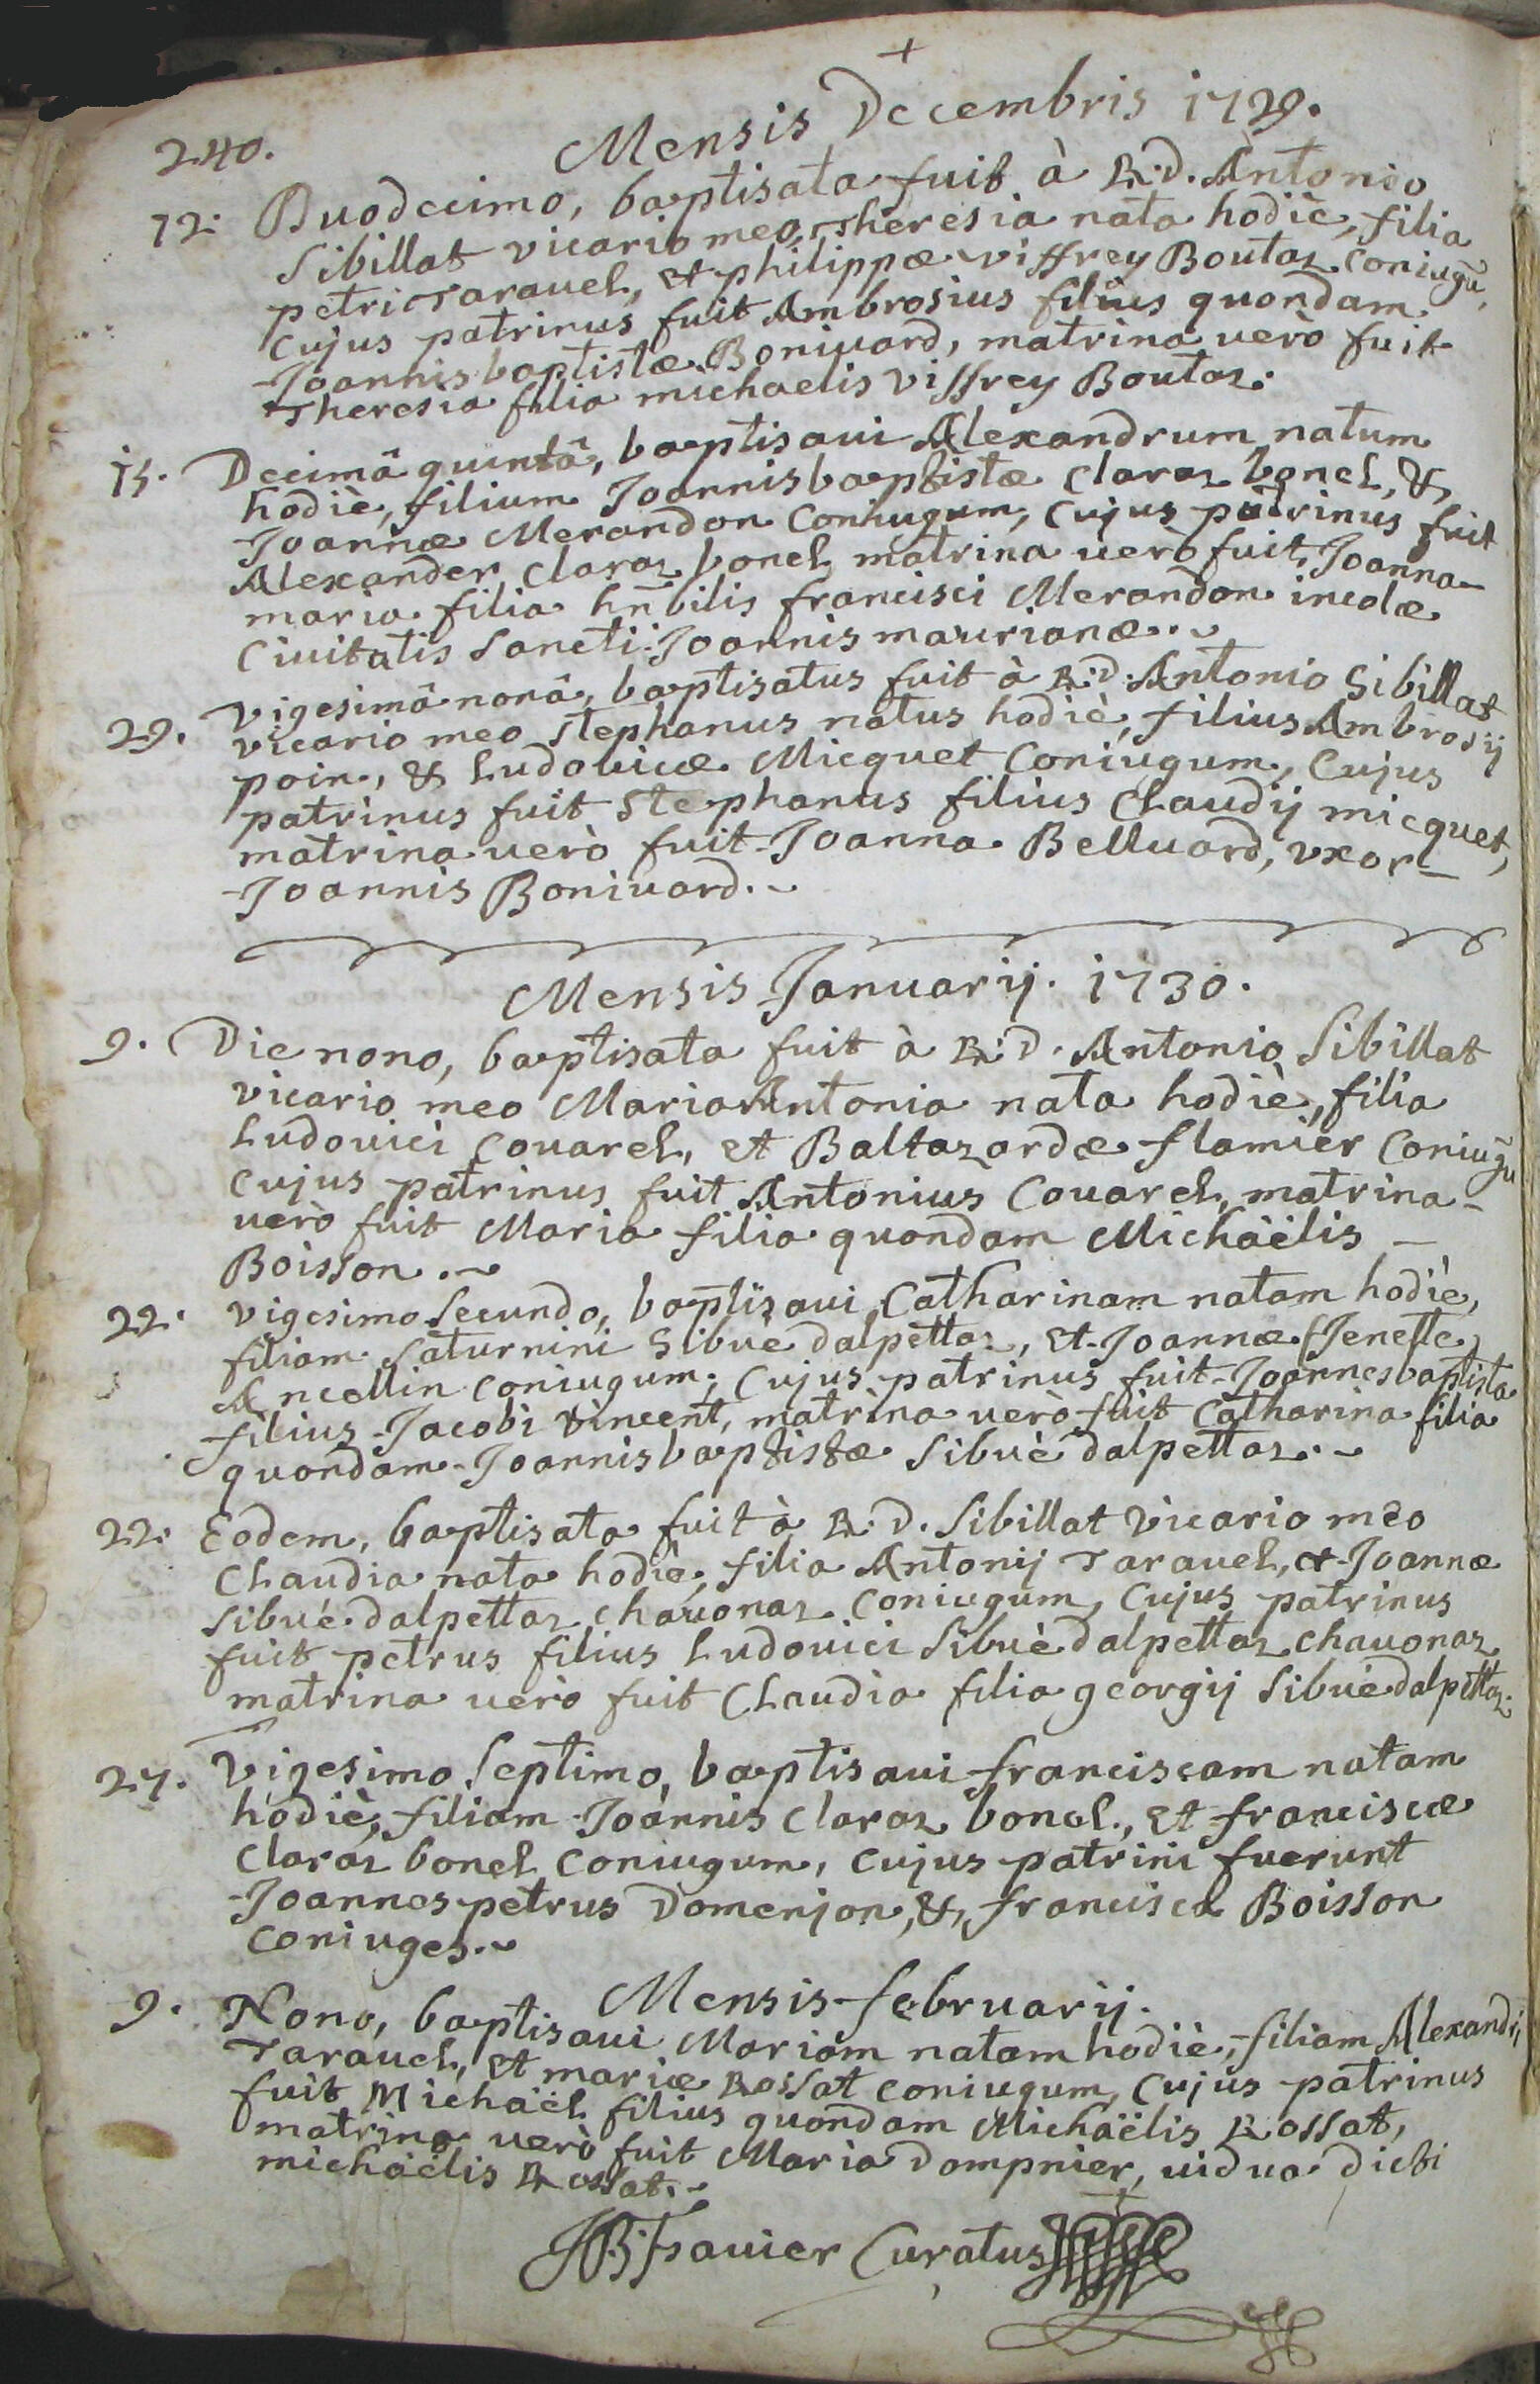 +
240. Mensis Decembris 1729.
12. Duodecimo, baptisata fuit à R.D. Antonio
Sibillat vicario meo, Theresia nata hodiè, filia
petri Taravel, et philippæ viffrey Boutaz Coniugũ,
Cujus patrinus fuit Ambrosius filius quondam
Joannisbaptistæ Bonivard, matrina verò fuit
Theresia filia michaelis viffrey Boutaz.
15. Decimâ quintâ, baptisaui Alexandrum natum
hodiè, filium Joannisbaptistæ Claraz bonel, &
Joannæ Merandon Coniugum, Cujus patrinus fuit
Alexander Claraz bonel matrina uerò fuit Joanna-
maria filia hñbilis francisci Merandon incolæ
Ciuitatis Sancti Joannis maurianæ.~
29. Vigesimâ nonâ, baptisatus fuit à R.D. Antonio Sibillat
vicario meo Stephanus natus hodiè, filius Ambrosij
poin, & Ludouicæ Micquet Coniugum, Cujus
patrinus fuit Stephanus filius Claudij micquet,
matrina uerò fuit Joanna Belluard, vxor-
Joannis Boniuard.~
Mensis Januarij. 1730.
9. Die nono, baptisata fuit à R.D. Antonio Sibillat
vicario meo MariaAntonia nata hodiè, filia
Ludouici Couarel, et Baltazardæ flamier Coniugũ
cujus patrinus fuit Antonius Couarel, matrina-
uerò fuit Maria filia quondam Michaëlis -
Boisson.~
22. vigesimo Secundo, baptisaui Catharinam natam hodiè,
filiam Saturnini Sibuè dalpettaz, et Joannæ Jenette
Ancellin coniugum; Cujus patrinus fuit Joannesbaptista
filius Jacobi vincent, matrina uerò fuit Catharina filia
quondam Joannisbaptistæ Sibuè dalpettaz.~
22. Eodem, baptisata fuit à R.D. Sibillat vicario meo
Claudia nata hodiè, filia Antonij Tarauel, et Joannæ
Sibué dalpettaz chauonaz Coniugum, Cujus patrinus
fuit petrus filius Ludouici Sibuè dalpettaz chauonaz
matrina uerò fuit Claudia filia georgij Sibuè dalpettaz.
27. Vigesimo Septimo, baptisaui franciscam natam
hodiè, filiam Joannis Claraz bonel, et franciscæ
Claraz bonel Coniugum, cujus patrini fuerunt
Joannes petrus Domenjon, & francisca Boisson
Coniuges.~
Mensis februarij.
9. Nono, baptisaui Mariam natam hodiè, filiam Alexandri
Tarauel, et mariæ Rossat coniugum, Cujus patrinus
fuit Michaël filius quondam Michaëlis Rossat,
matrina uerò fuit Maria Dompnier, uidua dicti
michaëlis Rossat.~
JB Trauier Curatus